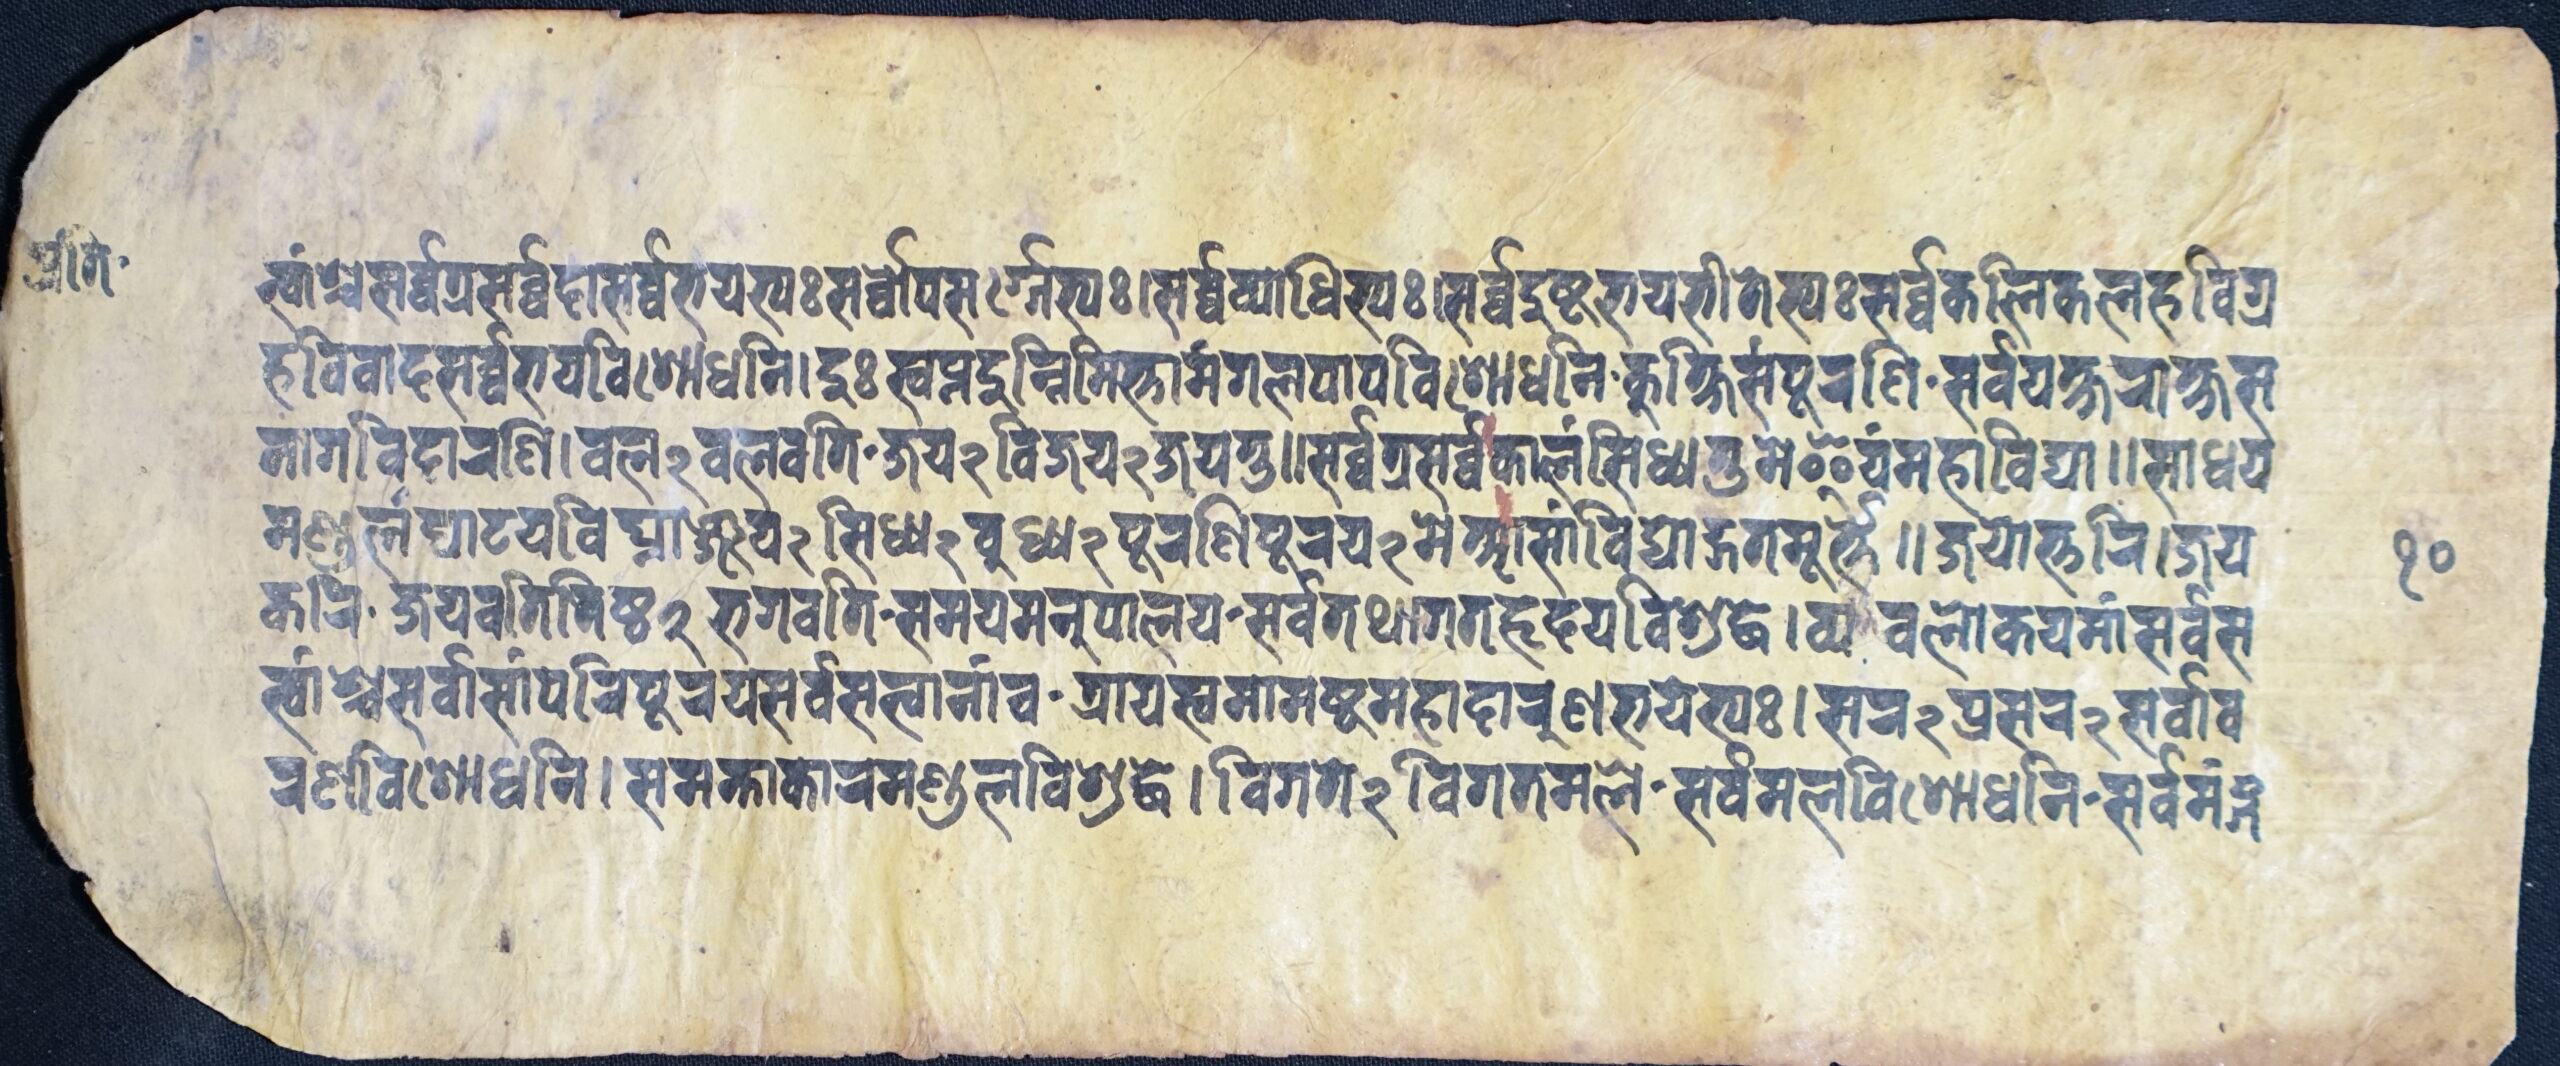 प्रति·
त्वांश्चसर्व्वत्रसर्व्वदासर्व्वभयभ्यःसर्व्वोपसर्ग्गेभ्यः।सर्व्वव्याधिभ्यः।सर्व्वदुष्टभयभीतेभ्यःसर्व्वकलिकलहविग्र
हविवादसर्व्वभयविशोधनि।दुःस्वप्नदुर्न्निमित्तामंगलपापविशोधनि·कुक्षिसंपूरणि·सर्वयक्षराक्षस
नागविदारणि।वल२वलवति·जय२विजय२जयतु॥सर्व्वत्रसर्व्वकालंसिध्यतुमेॐयंमहाविद्या॥साधय
मण्डलंघाटयविघ्नाञ्जय२सिध्य२बुध्य२पूरणिपूरय२मेआसांविद्योद्गतमूर्त्ते॥जयोत्तरि।जय
करि·जयवतितिष्ठ२भगवति·समयमनुपालय·सर्वतथागतहृदयविशुद्धे।व्यवलोकयमांसर्वस
त्वांश्चसर्वासांपरिपूरयसर्वसत्वानांच·त्रायस्वमामष्टमहादारुणभयेभ्यः।सर२प्रसर२सर्वाव
रणविशोधनि।समन्ताकारमण्डलविशुद्धे।विगते२विगतमले·सर्वमलविशोधनि·सर्वमंङ्ग
१०